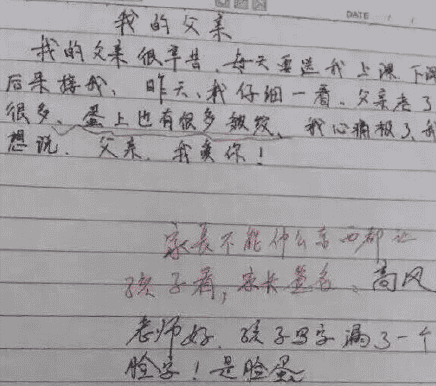 DATE
我的父亲
我的父亲很辛苦,每天要送我上课、下课
后来接我、昨天、我仔细一看、父亲老了
很多、蛋上也有很多皱纹、我心痛极了,我
想说、父亲、我爱你!
家长不能什么东西都让
孩子看,家长签名、高风
老师好、孩子写字漏了一个
脸字!是脸蛋